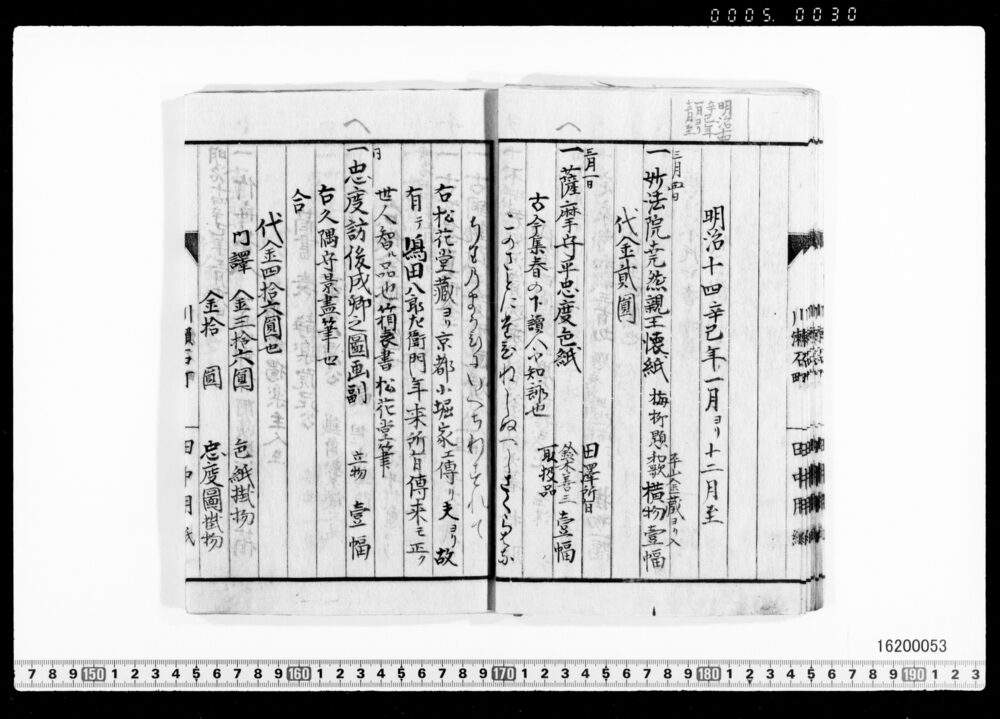 0005. 0030
明治十四
辛巳年
一月ヨリ
十二月至
明治十四辛巳年一月ヨリ十二月至
三月四日
一妙法院尭然親王懐紙 梅柳題和歌 横物壹幅
平山金藏ヨリ入
代金貳圓
三月一日
一薩摩守平忠度色紙 壹幅
田澤所
鈴木善三
取扱品
古今集春の下讀人不知詠也
このさとにたひねしぬへしさくらはな
ちりのまかひにいへちわすれて
右松花堂藏ヨリ京都小堀家エ傳リ夫ヨリ故
有テ嶋田八郎左衛門年来所有傳来モ正ク
世人智ル品也箱表書松花堂筆
一忠度訪俊成卿之圖画副 立物 壹幅
右久隅守景畫筆也
合
代金四拾六圓也
内譯 金三拾六圓 色紙掛物
金拾圓 忠度圖掛物
川瀬石町
田中用紙
16200053
7 8 9 150 1 2 3 4 5 6 7 8 9 160 1 2 3 4 5 6 7 8 9 170 1 2 3 4 5 6 7 8 9 180 1 2 3 4 5 6 7 8 9 190 1 2 3